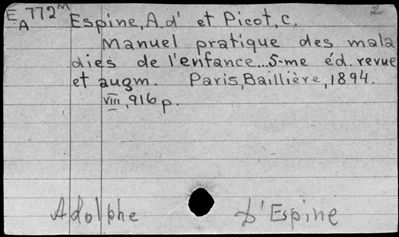 E 772ᴹ Espine, A. d' et Picot, C. 2
A
Manuel pratique des mala
dies de l'enfance...5-me éd. revue
et augm. Paris, Baillière, 1894.
VIII, 916 p.
Adolphe D'Espine